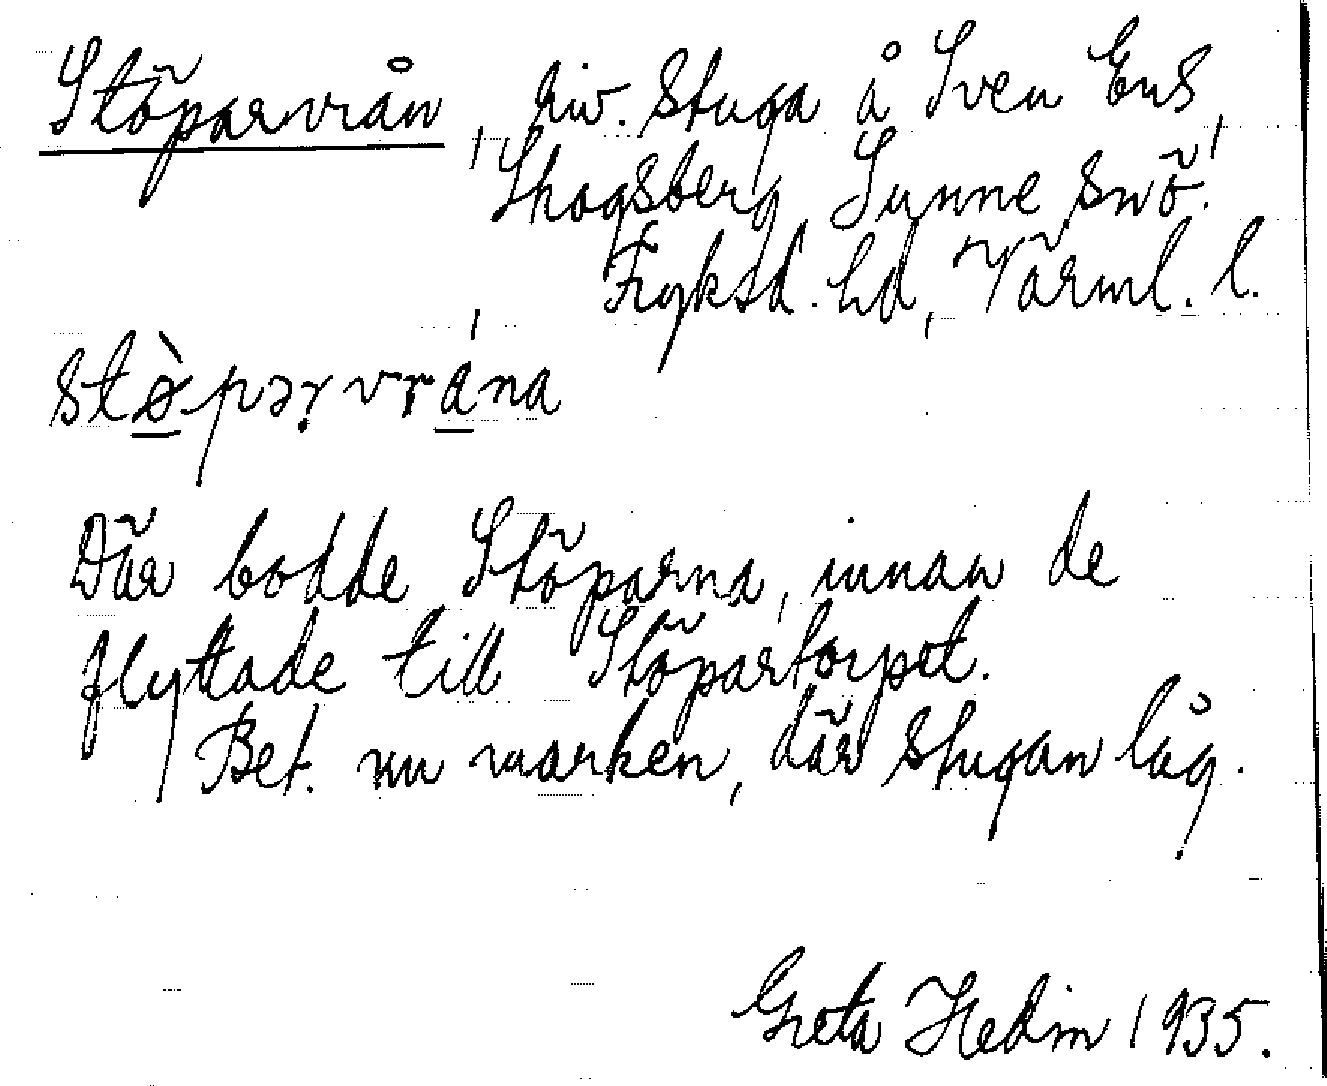 Stöparvrån, riv. stuga å Sven Ers,
Skogsberg, Sunne snö.
Fryksd. hd, Värml. l.
stø̀pəṛvrána
Där bodde Stöparna, innan de
flyttade till Stöpartorpet.
Bet. nu marken, där stugan låg.
Greta Hedin 1935.